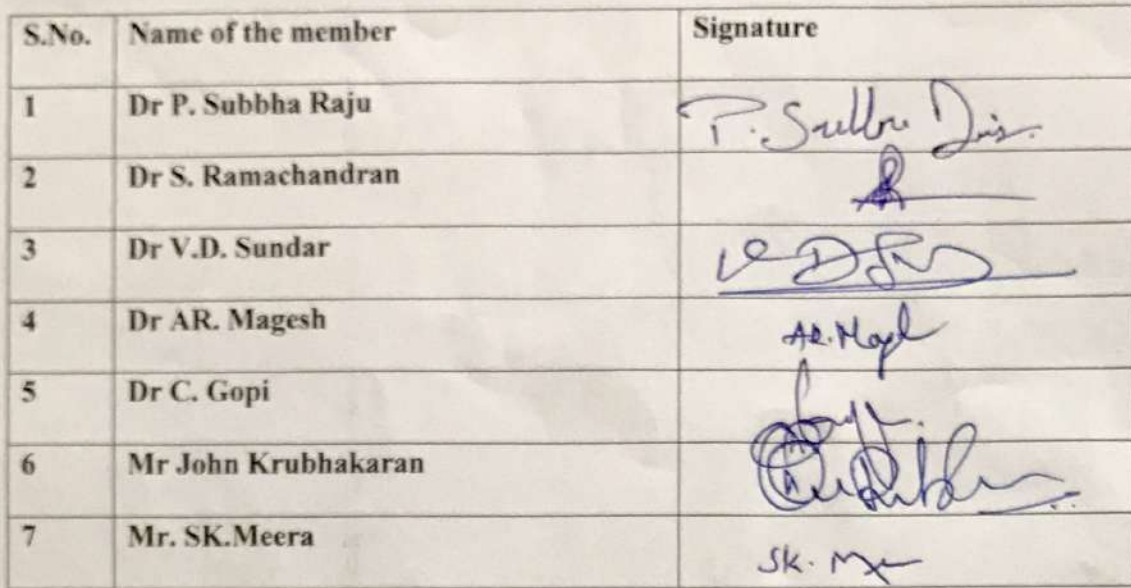 S.No. Name of the member Signature
1 Dr P. Subbha Raju P.
2 Dr S. Ramachandran
3 Dr V.D. Sundar
4 Dr AR. Magesh AR.
5 Dr C. Gopi
6 Mr John Krubhakaran
7 Mr. SK.Meera SK.